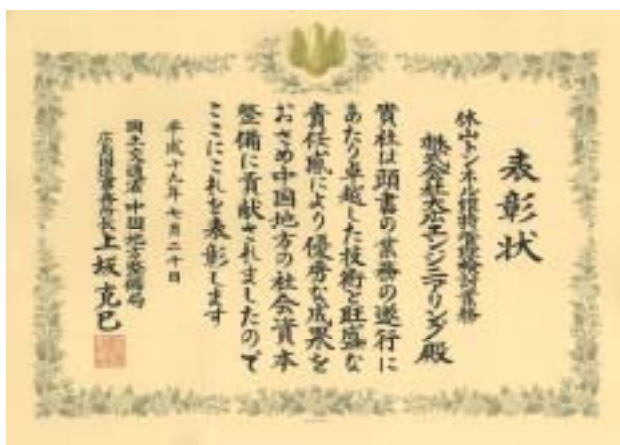 表彰状
休山トンネル維持管理検討業務
株式会社大広エンジニアリング殿
貴社は頭書の業務の遂行に
あたり卓越した技術と旺盛な
責任感により優秀な成果を
おさめ中国地方の社会資本
整備に貢献されましたので
ここにこれを表彰します
平成十九年七月二十日
国土交通省中国地方整備局
広島国道事務所長上坂克巳